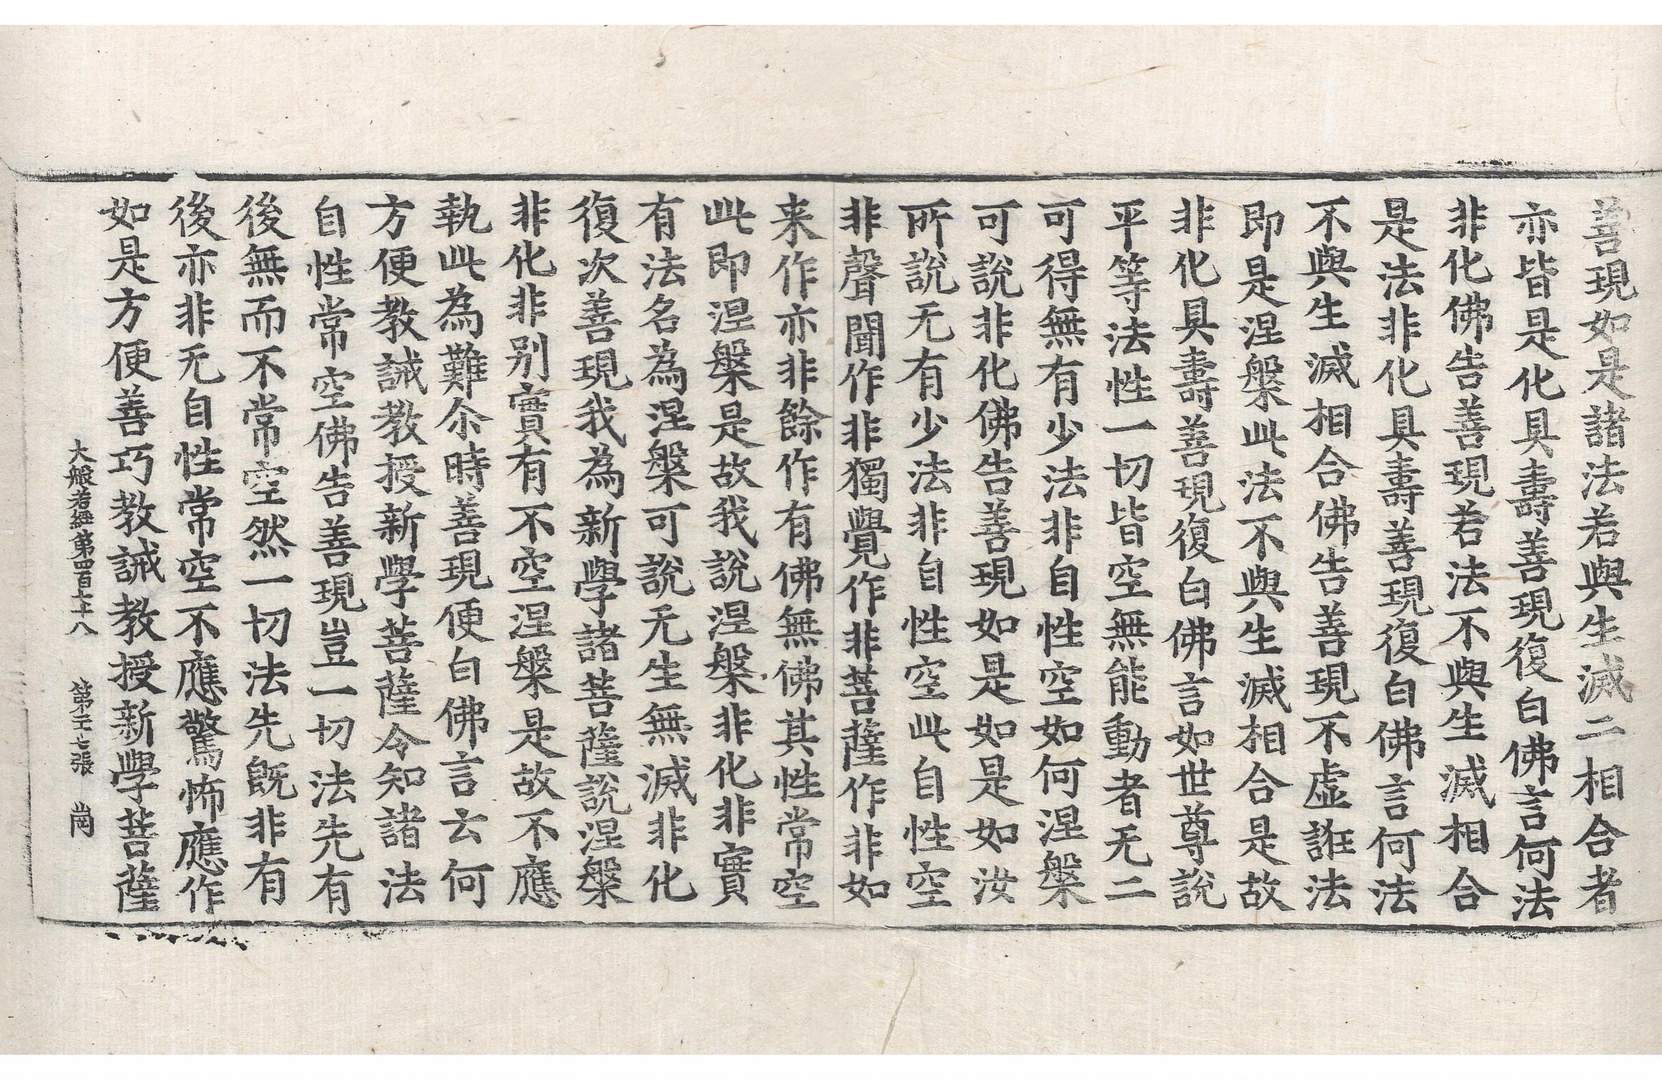 善現如是諸法若與生滅二相合者
亦皆是化具壽善現復白佛言何法
非化佛告善現若法不與生滅相合
是法非化具壽善現復白佛言何法
不與生滅相合佛告善現不虛誑法
即是涅槃此法不與生滅相合是故
非化具壽善現復白佛言如世尊說
平等法性一切皆空無能動者无二
可得無有少法非自性空如何涅槃
可說非化佛告善現如是如是如汝
所說无有少法非自性空此自性空
非聲聞作非獨覺作非菩薩作非如
来作亦非餘作有佛無佛其性常空
此即涅槃是故我說涅槃非化非實
有法名為涅槃可說无生無滅非化
復次善現我為新學諸菩薩說涅槃
非化非別實有不空涅槃是故不應
執此為難尒時善現便白佛言云何
方便教誡教授新學菩薩令知諸法
自性常空佛告善現豈一切法先有
後無而不常空然一切法先既非有
後亦非无自性常空不應驚怖應作
如是方便善巧教誡教授新學菩薩
大般若經第四百七十八 第二七張 崗